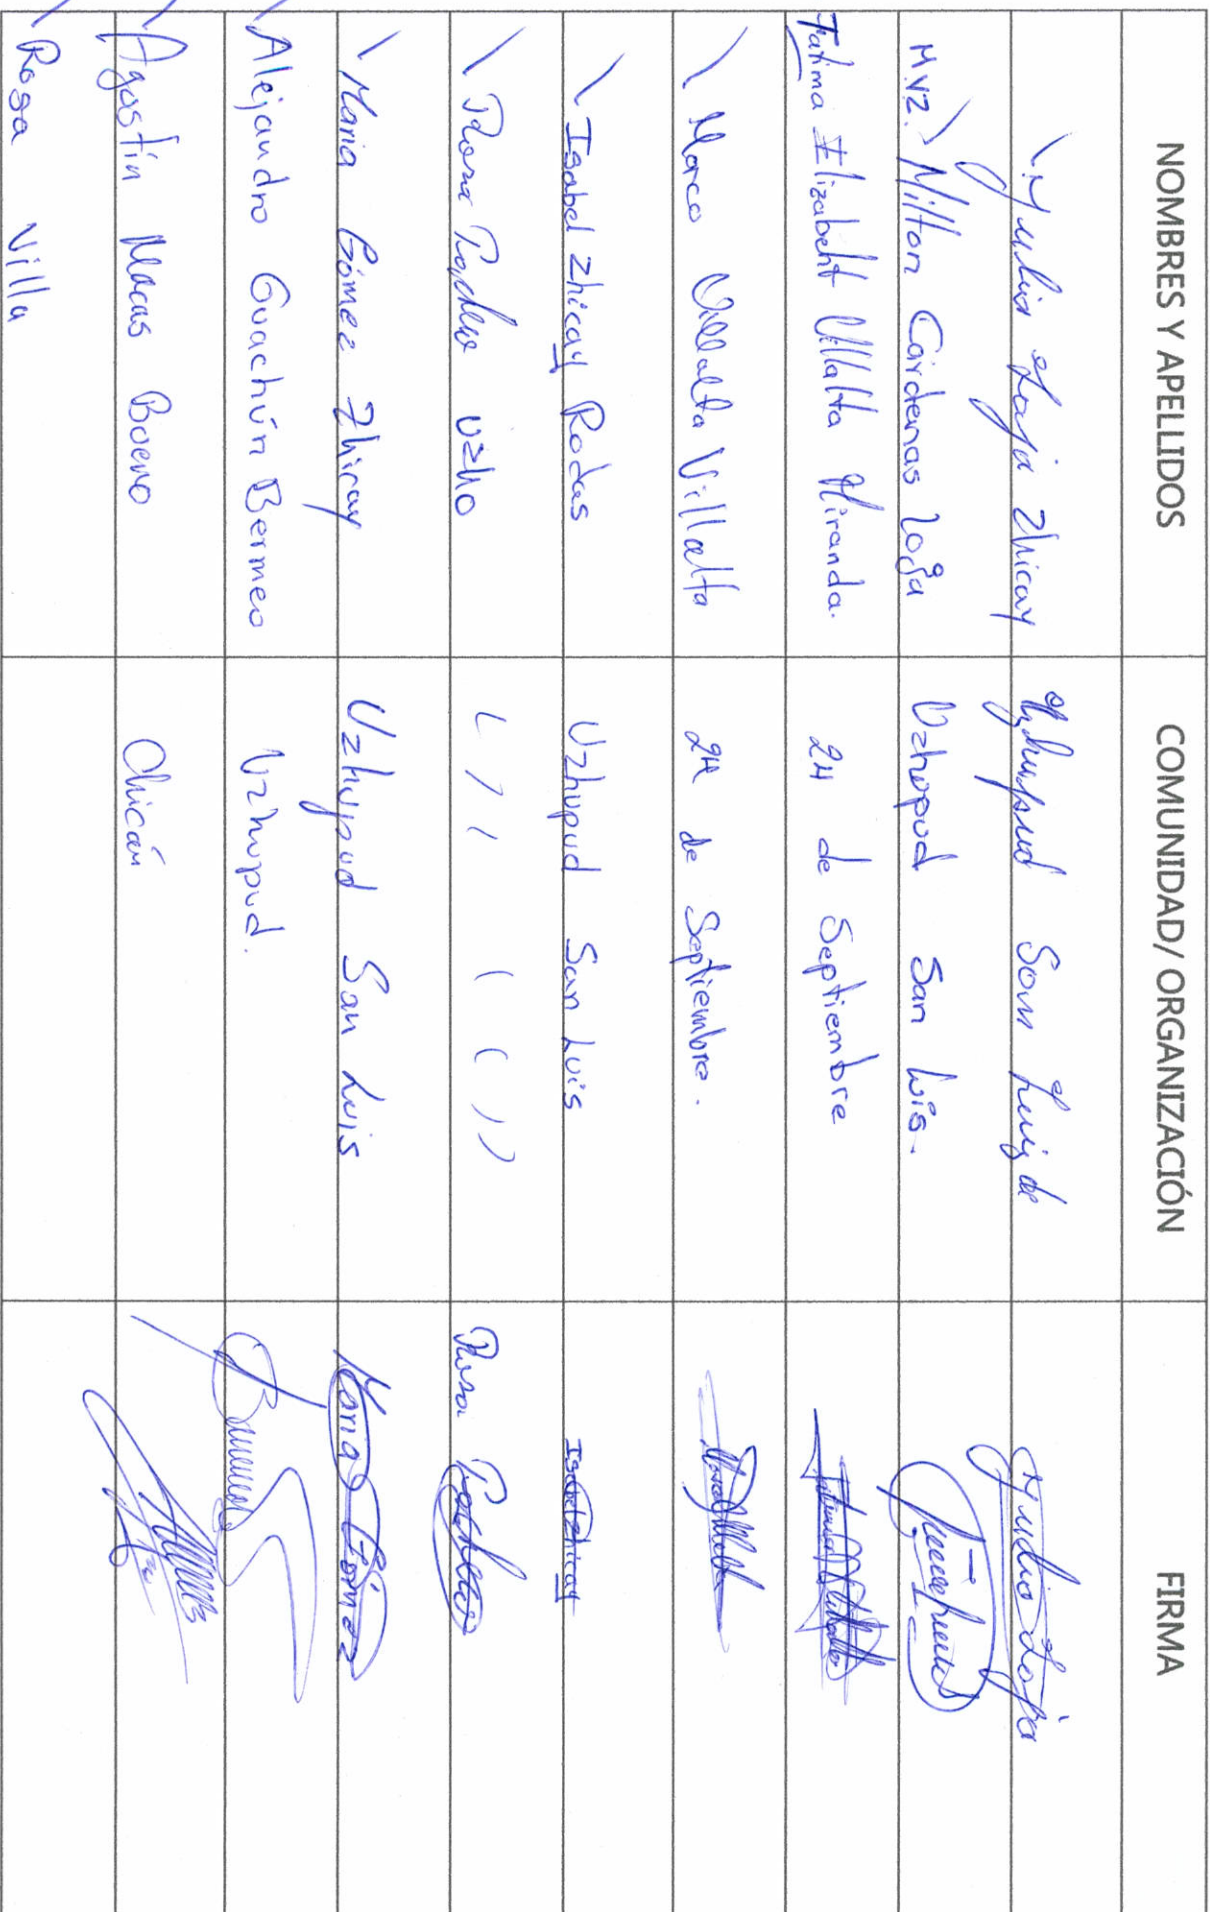 NOMBRES Y APELLIDOS COMUNIDAD/ ORGANIZACIÓN FIRMA
Yulia Loja Zhicay Uzhupud San Luis de Yulia Loja
M.VZ. Milton Cárdenas Loja Uzhupud San Luis.
Fatima Elizabeht Villalta Miranda. 24 de Septiembre
Marco Villalta Villalta 24 de Septiembre.
Isabel Zhicay Rodas Uzhupud San Luis Isabel Zhicay
Rosa Pacheco Uzho ( / / ( ( ) ) Rosa Pacheco
Maria Gómez Zhicay Uzhupud San Luis Maria Gómez
Alejandro Guachún Bermeo Uzhupud.
Agostín Macas Boeno Chicán
Rosa Villa